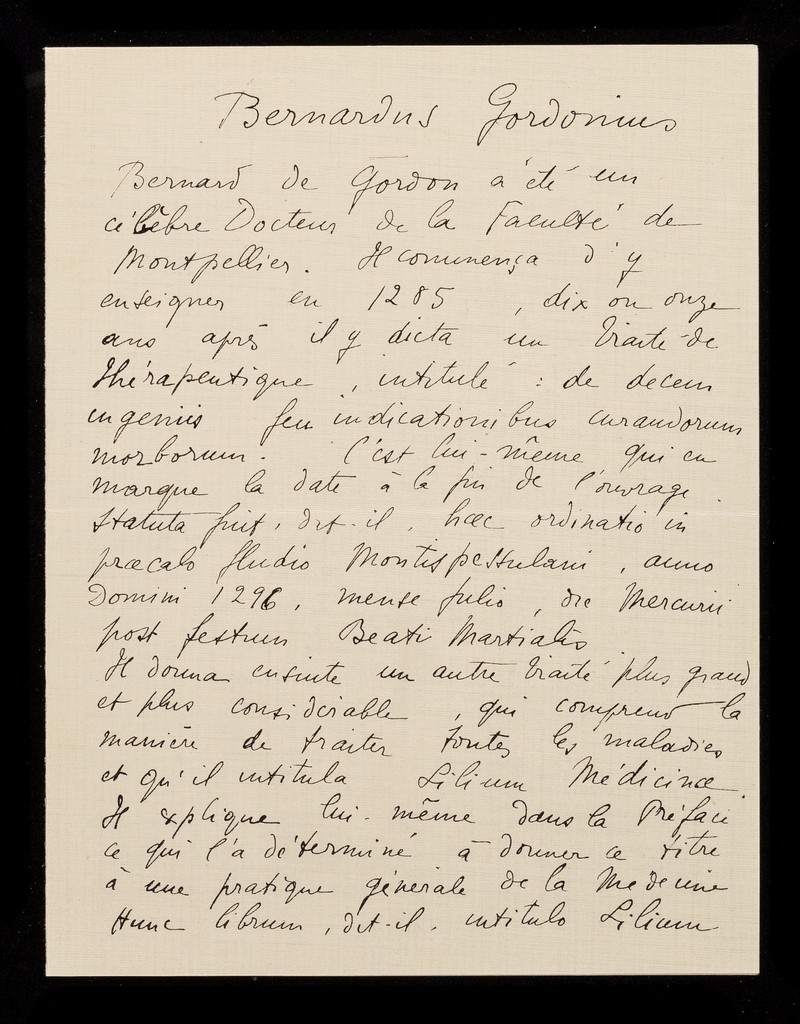 Bernardus Gordonius
Bernard de Gordon a été un
célèbre Docteur de la Faculté de
Montpellier. Il commença d'y
enseigner en 1285, dix ou onze
ans après il y dicta un Traité de
thérapeutique, intitulé : de decem
ingeniis seu indicationibus curandorum
morborum. C'est lui-même qui en
marque la date à la fin de l'ouvrage.
Statuta fuit, dit-il, haec ordinatio in
praecalo studio Montispessulani, anno
Domini 1296, mense julio, die Mercurii
post festum Beati Martialis
Il donna ensuite un autre Traité plus grand
et plus considérable, qui comprend la
manière de traiter toutes les maladies
et qu'il intitula Lilium Médicinae.
Il explique lui-même dans la Préface
ce qui l'a déterminé à donner ce titre
à une pratique générale de la Medecine
Hunc librum, dit-il, intitulo Lilium